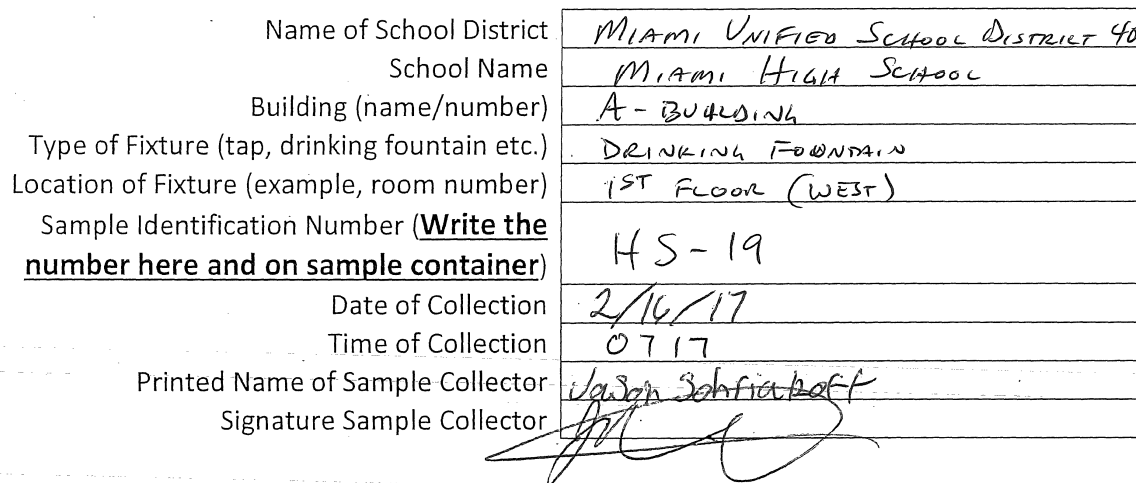 Name of School District MIAMI UNIFIED SCHOOL DISTRICT 40
School Name MIAMI HIGH SCHOOL
Building (name/number) A - BUILDING
Type of Fixture (tap, drinking fountain etc.) DRINKING FOUNTAIN
Location of Fixture (example, room number) 1ST FLOOR (WEST)
Sample Identification Number (Write the
number here and on sample container) HS-19
Date of Collection 2/16/17
Time of Collection 0717
Printed Name of Sample Collector Jason
Signature Sample Collector